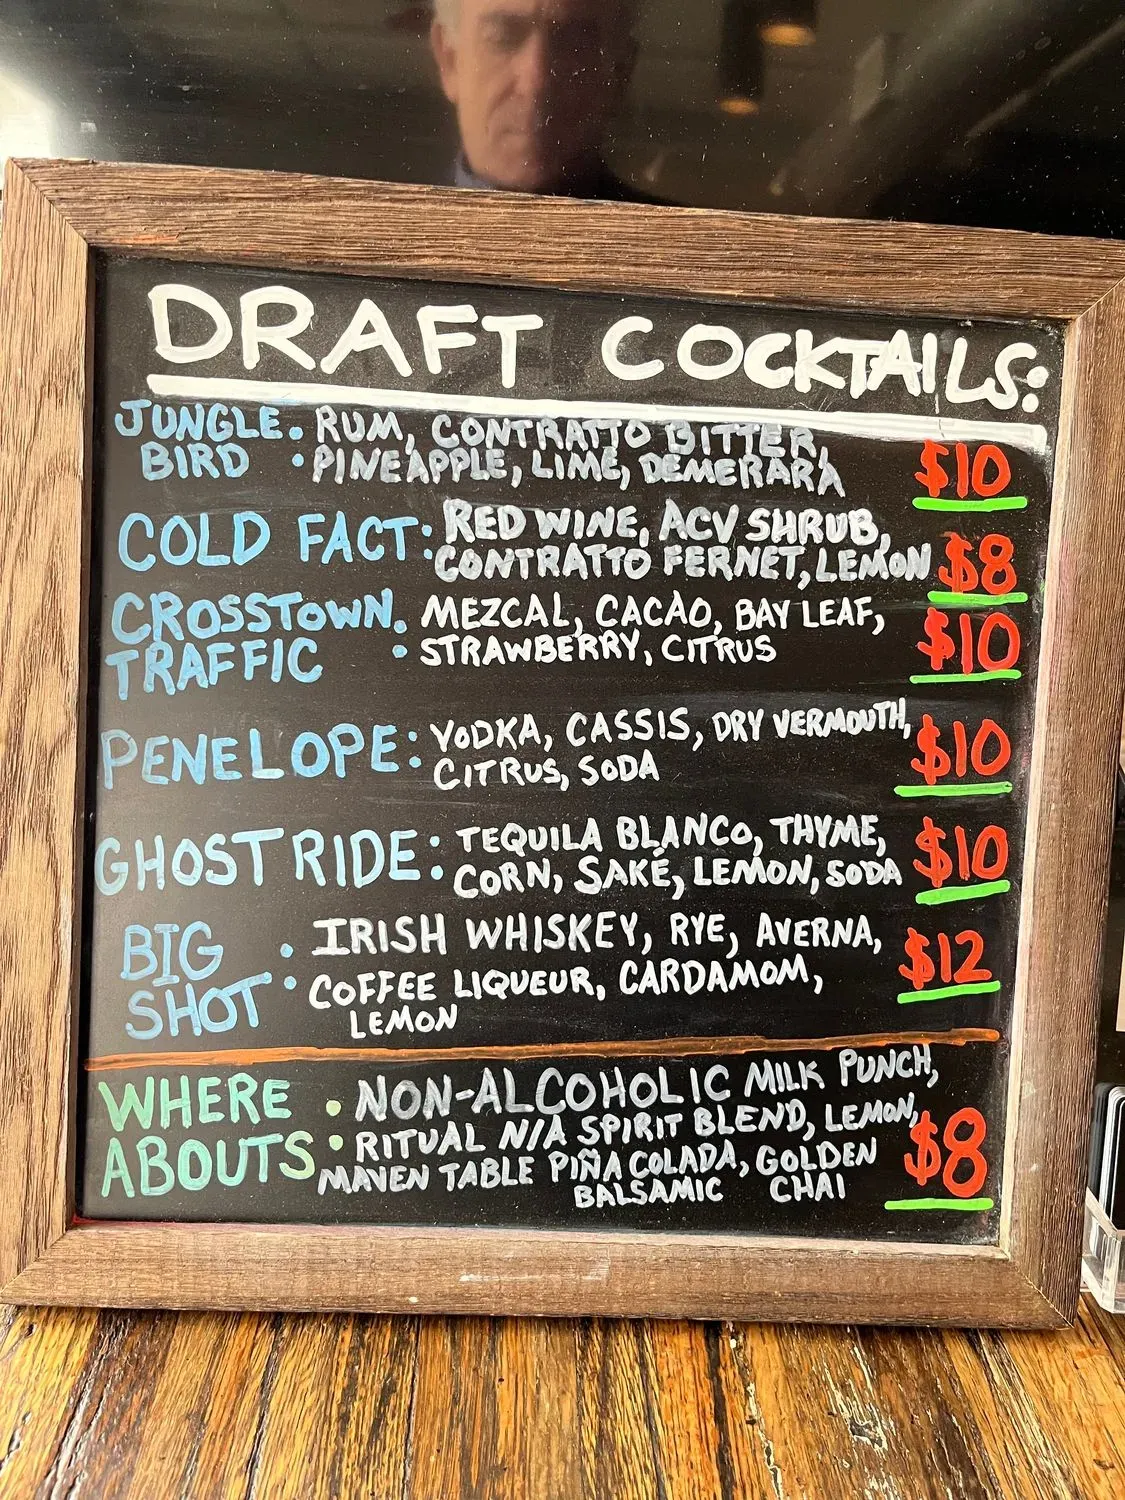 DRAFT COCKTAILS:
JUNGLE BIRD: RUM, CONTRATTO BITTER, $10
PINEAPPLE, LIME, DEMERARA
COLD FACT: RED WINE, ACV SHRUB, $8
CONTRATTO FERNET, LEMON
CROSSTOWN TRAFFIC: MEZCAL, CACAO, BAY LEAF, $10
STRAWBERRY, CITRUS
PENELOPE: VODKA, CASSIS, DRY VERMOUTH, $10
CITRUS, SODA
GHOST RIDE: TEQUILA BLANCO, THYME, $10
CORN, SAKÉ, LEMON, SODA
BIG SHOT: IRISH WHISKEY, RYE, AVERNA, $12
COFFEE LIQUEUR, CARDAMOM,
LEMON
WHERE ABOUTS: NON-ALCOHOLIC MILK PUNCH, $8
RITUAL N/A SPIRIT BLEND, LEMON,
MAVEN TABLE PIÑA COLADA, GOLDEN
BALSAMIC CHAI